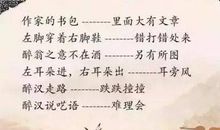 作家的书包 --------里面大有文章
左脚穿着右脚鞋 ------错打错处来
醉翁之意不在酒 ------另有所图
左耳朵进，右耳朵出 -----耳旁风
醉汉走路 -------跌跌撞撞
醉汉说呓语 -------难理会